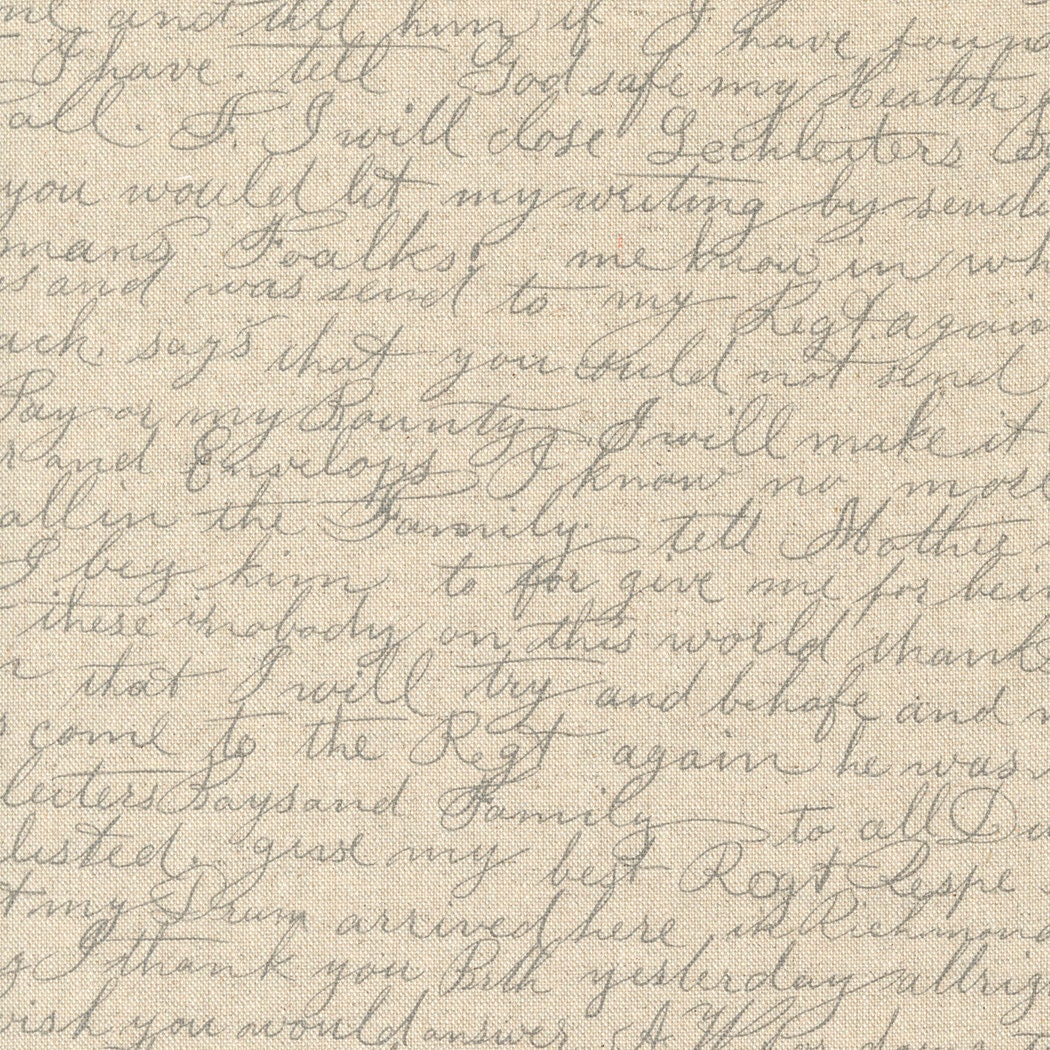 and tell him if I have found
I have. tell God safe my Health
all. F. I will close Lechleiters
you would let my writing by sendi
mans Foalks. me know in wh
and was send to my Regt again
ack. says that you could not send
Pay or my Bounty I will make it
and Envelops I know no more
all in the Family tell Mother
I beg him to for give me for bein
these nobody on this world thanks
that I will try and behafe and
come to the Regt again he was
leiters Boys and Family to all
listed. give my best Regt Respe
my Drum arrived here in Richmond
I thank you Bill yesterday allrig
wish you would answer